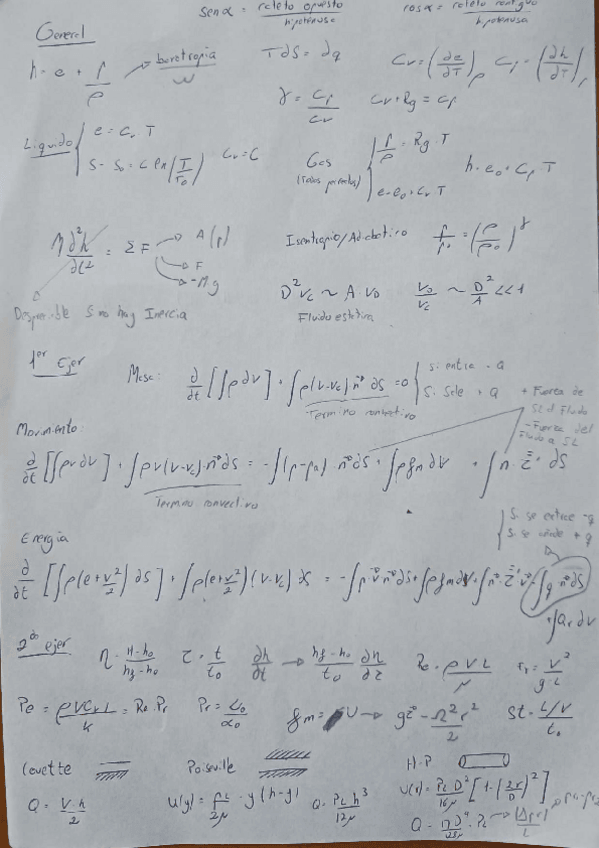 sen α = cateto opuesto / hipotenusa    cos α = cateto contiguo / hipotenusa
General
h = e + p/ρ → barotropía w    T dS = dq    Cv = (∂e/∂T)ρ  Cp = (∂h/∂T)p
γ = Cp/Cv    Cv + Rg = Cp
Líquido { e = Cv T    Gas { p/ρ = Rg · T
S - So = C ln(T/To)    Cv = C    e = eo + Cv T    h = eo + Cp T
M d²h/dt² = ΣF → A(p)    Isentropio/Adiabatico    p/po = (ρ/ρo)^γ
→ F
→ -Mg    D² Vc ~ A · Vo    Vo/Vc ~ D²/A << 1
Despreciable Si no hay Inercia    Fluidoestatica
1er Ejer
Masa: ∂/∂t [∫ρ dV] + ∫ρ(v-vc) n dS = 0 { Si entra - Q
Si Sale + Q
Termino convectivo
+ Fuerza de SL al Fluido
- Fuerza del Fluido a SL
Movimiento:
∂/∂t [∫ρv dV] + ∫ρv(v-vc)·n dS = -∫(p-pa) · n dS + ∫ρ fm dV + ∫n · τ · dS
Termino convectivo
{ Si se extrae -q
Si se añade + q
Energía
∂/∂t [∫ρ(e+v²/2) dS] + ∫ρ(e+v²/2)(v-vc) dS = -∫p v n dS + ∫ρ fm dV + ∫n · τ v - ∫q n dS
+ ∫Qr dV
2do ejer
η = H-ho / hf-ho    τ = t/to    ∂h/∂t → hf-ho/to ∂η/∂τ    Re = ρVL/μ    Fr = V²/g·L
Pe = ρVCvL/k = Re · Pr    Pr = νo/αo    fm = U → gz - Ω²r²/2    St = L/V / to
Couette    Poiseuille    H-P
Q = V·h/2    U(y) = PL/2μ · y(h-y)    Q = PL h³/12μ    U(r) = PL D²/16μ [1-(2r/D)²]
Q = πD⁴/128μ · PL → |Δp+ρ|/L